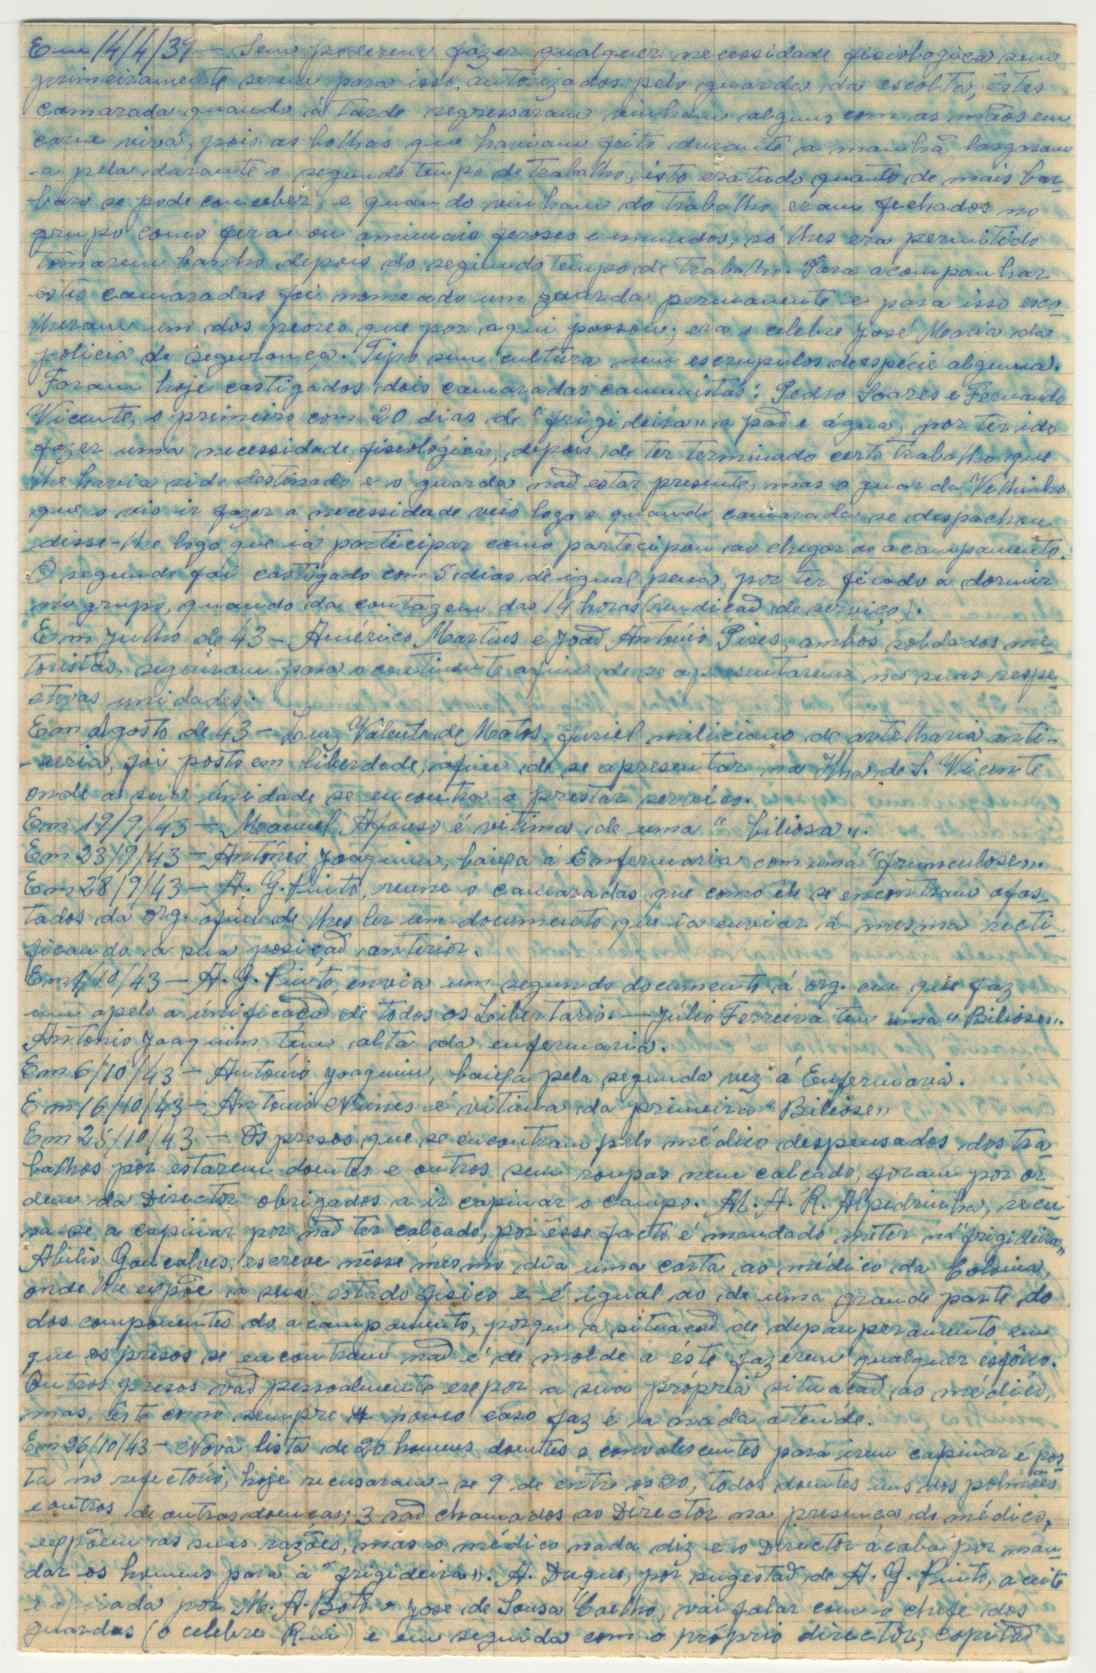 Em 14/4/39 — Sem poderem fazer qualquer necessidade fisiologica sem
primeiramente serem para isso autorizados pelo guarda da escolta, êstes
camaradas quando á tarde regressaram vinham alguns com as mãos em
carne viva, pois as bolhas que haviam feito durante a manhã
a pele durante o segundo tempo de trabalho, isto era tudo quanto de mais bar-
baro se pode conceber, e quando vinham do trabalho eram fechados no
grupo como feras ou animais ferozes e imundos, só lhes era permitido
tomarem banho depois do segundo tempo de trabalho. Para acompanhar
estes camaradas foi nomeado um guarda permanente e para isso esco-
lheram um dos peores que por aqui passou; era o celebre José Maria da
policia de segurança. Tipo sem cultura nem escrupulos de espécie alguma.
Foram hoje castigados dois camaradas comunistas: Pedro Soares e Fernando
Vicente, o primeiro com 20 dias de "frigideira" a paõ e água, por ter ido
fazer uma necessidade fisiológica, depois de ter terminado certo trabalho que
lhe havia sido destinado e o guarda naõ estar presente, mas o guarda Velhinho
que o viu ir fazer a necessidade veio logo e quando camarada se despachou
disse-lhe logo que ia participar como participou ao chegar ao acampamento.
O segundo foi castigado com 5 dias de igual pena, por ter ficado a dormir
no grupo, quando da contagem das 14 horas (rendicaõ de serviço).
Em Julho de 43 — Américo Martins e Joaõ António Pires, ambos soldados mo-
toristas, seguiram para o continente afim de se apresentarem nos suas respe-
ctivas unidades.
Em Agosto de 43 — Luiz Valente de Matos, furiel miliciano de artelharia anti-
-aeria, foi posto em liberdade, afim de se apresentar na Ilha de S. Vicente
onde a sua unidade se encontra a prestar serviço.
Em 19/9/43 — Manuel Afonso é vitima de uma "biliosa".
Em 23/9/43 — António Joaquim, baixa á Enfermaria com uma "frunculose".
Em 28/9/43 — A. G. Pinto, reune o camaradas que como êle se encontram afas-
tados da org. afim de lhes ler um documento que ia enviar á mesma recti-
ficando a sua posicaõ anterior.
Em 1/10/43 — A. G. Pinto, envia um segundo documento á org. em que faz
um apelo á únificacaõ de todos os Loibertarios — Júlio Ferreira tem uma "Biliose".
Antonio Joaquim tem alta da enfermaria.
Em 6/10/43 — António Joaquim, baixa pela segunda vez á Enfermaria.
Em 16/10/43 — Antonio Nunes é vitima da primeira "Biliose"
Em 25/10/43 — Os presos que se encontram pelo médico despensados dos tra-
balhos por estarem doentes e outros sem roupas nem calçado, foram por or-
dem da Director obrigados a ir capinar o campo. M. A. R. Alpedrinha, recu-
sa-se a capinar por naõ ter calçado, por êsse facto é mandado meter ná "frigideira"
Abilio Goncalves, escreve nêsse mesmo dia uma carta ao médico da Colonia,
onde lhe expõe o seu estado fisico e é igual ao de uma grande parte do
dos componentes do acampamento, porque a situacaõ de depauperamento em
que os presos se encontram naõ é de molde a éste fazerem qualquer esfôrço.
Outros presos vaõ pessoalmente expor a sua própria situacaõ ao médico,
mas, êste como sempre pouco caso faz e a nada atende.
Em 26/10/43 — Nova lista de 20 homens, doentes e convalescentes para irem capinar é pos-
ta no refectorio, hoje recusaram-se 9 de entre os 20, todos doentes uns dos pulmões
e outros de outras doenças; 3 saõ chamados ao Director na presença do médico,
expõem as suas razões, mas o médico nada diz e o Director ácaba por man-
dar os homens para a "frigideira". A. Duque, por sugestaõ de A. G. Pinto, aceite
por M. A. Boto e José de Sousa Coelho, vai falar com o chefe dos
guardas (o celebre Rui) e em seguida com o próprio director, capitaõ